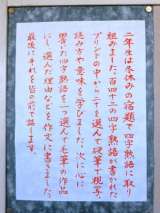 二年生は冬休みの宿題で四字熟語に取り
組みました。百四十二の四字熟語が書かれた
プリントの中から二十を選んで硬筆で視写、
読み方や意味を学びました。次に、心に
響いた四字熟語を一つ選んで毛筆の作品
にし、選んだ理由などを作文に書きました。
最後に、それを皆の前で話します。